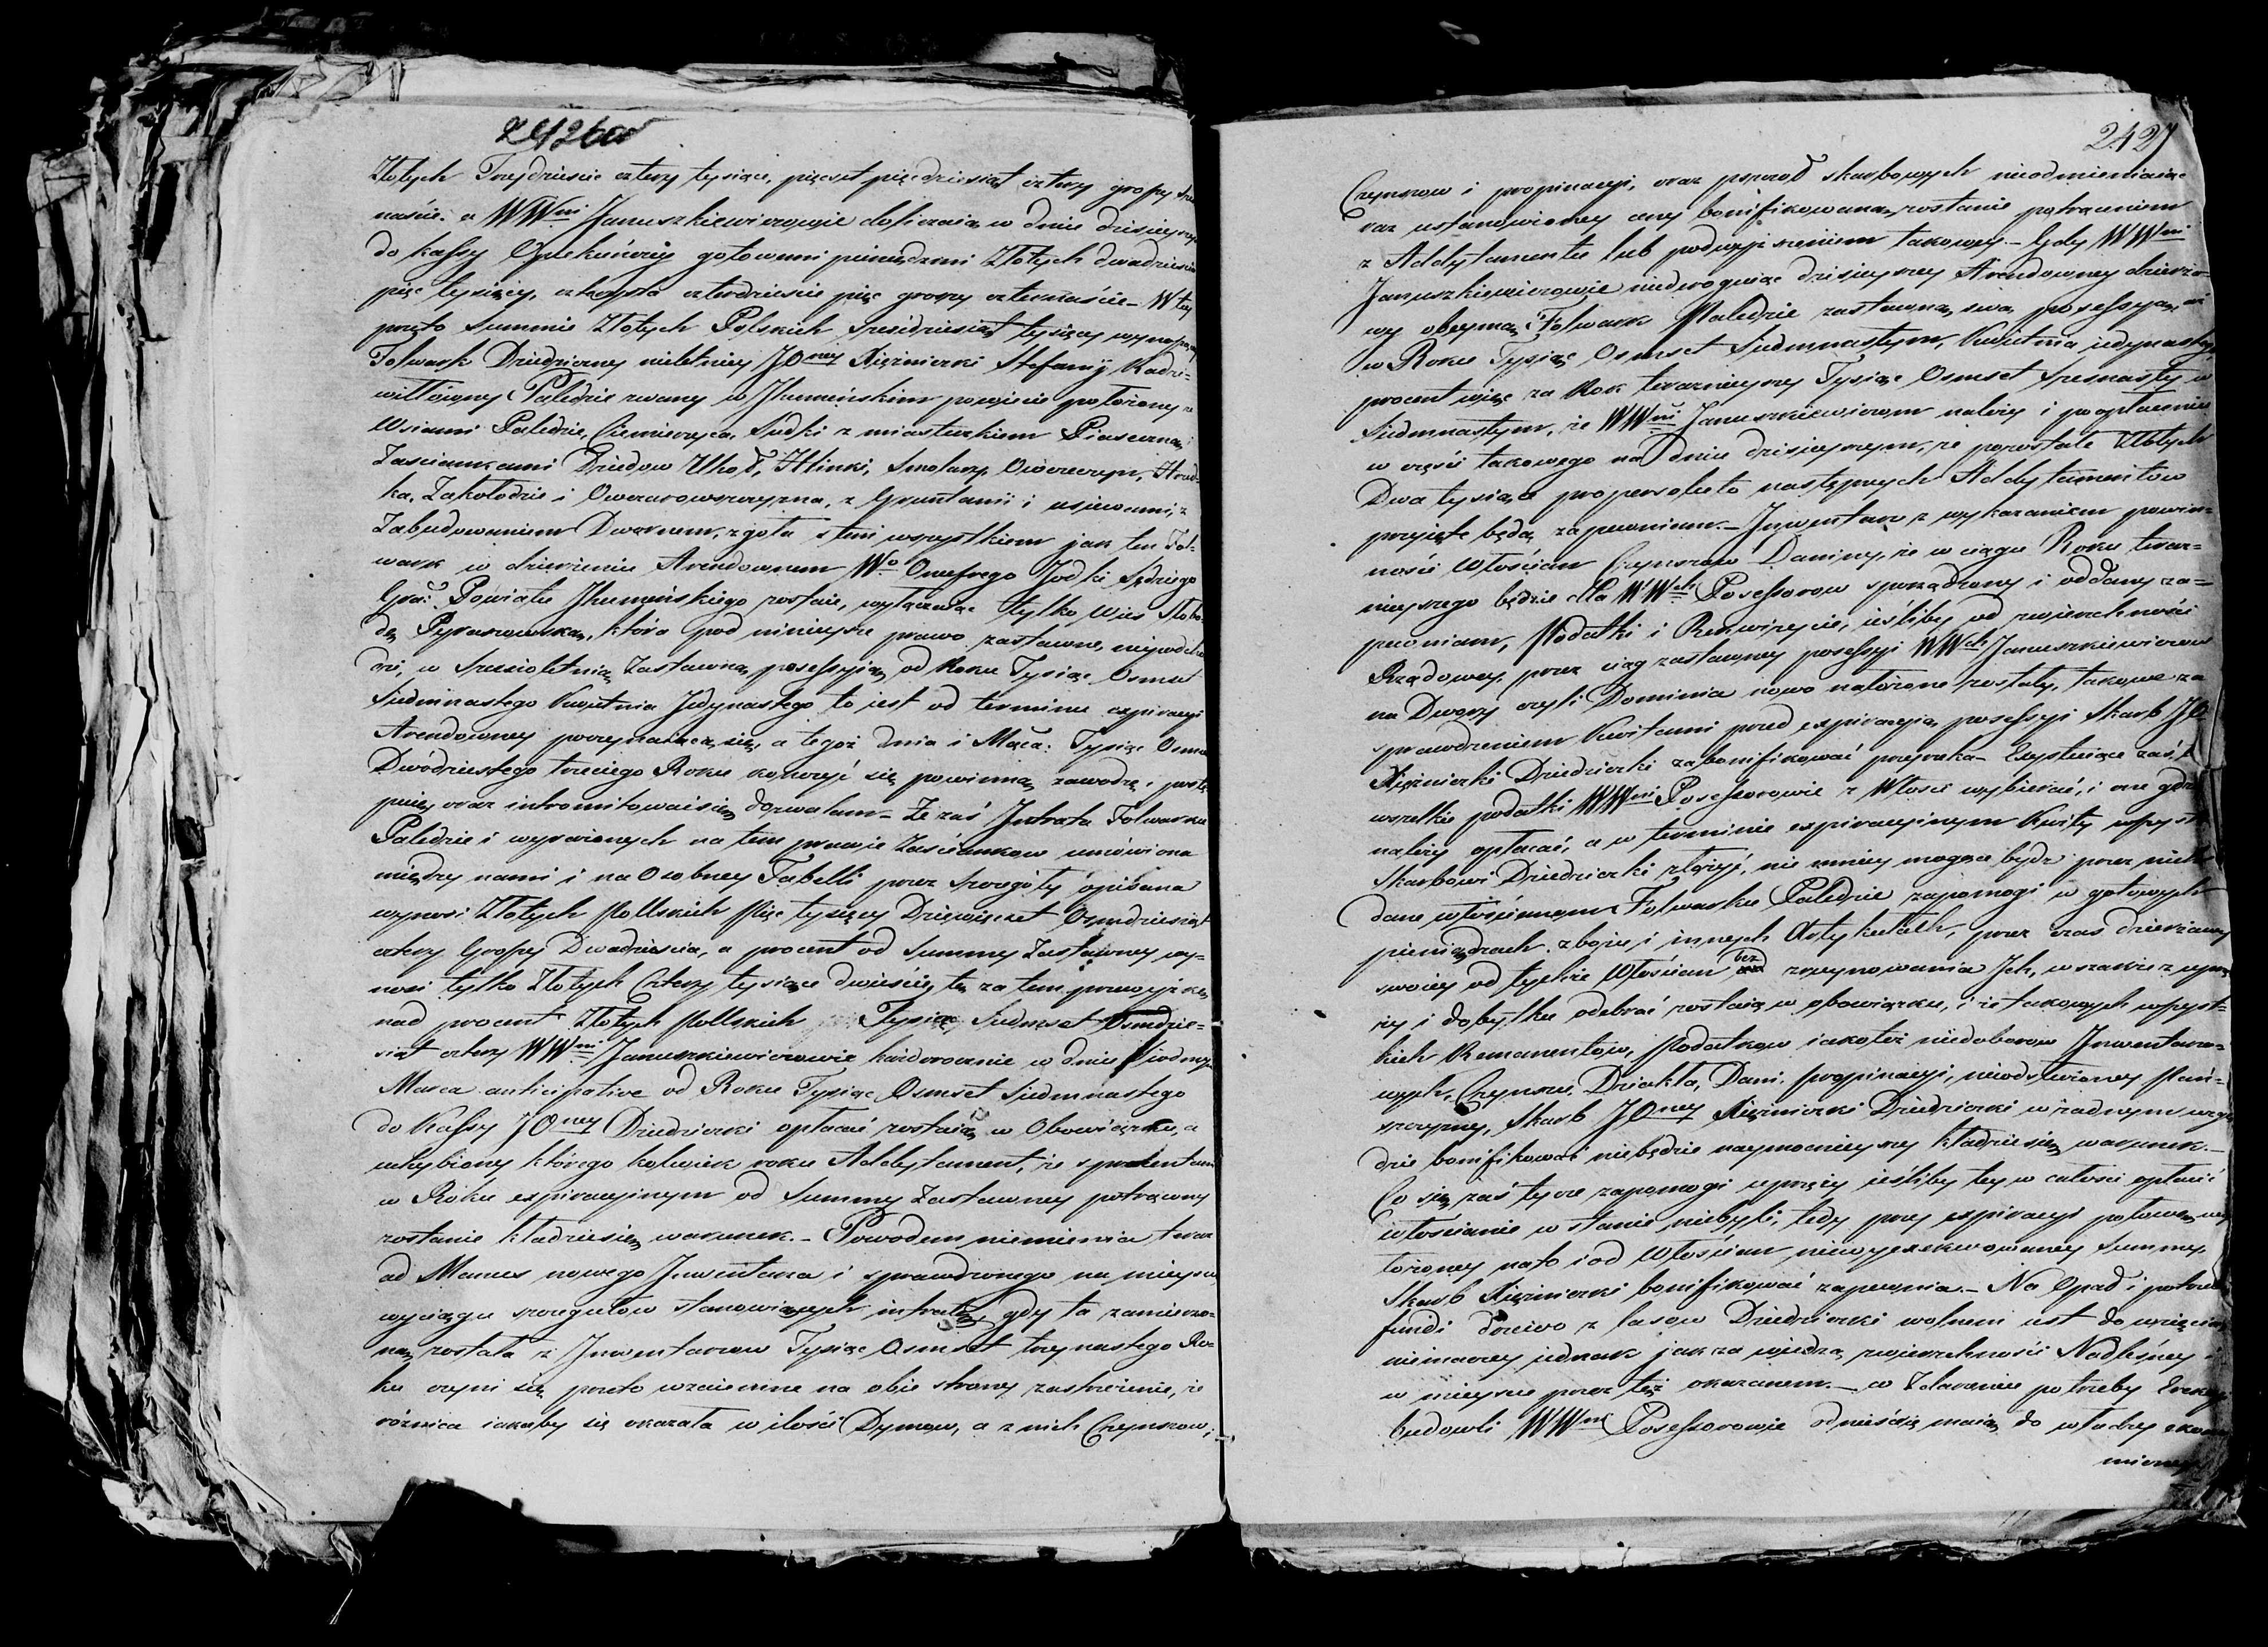 2426 av
Złotych Trzydzieście cztery tysiące, pięcset pięcdziesiąt cztery groszy
naście: a WWni Januszkiewiczowie doliczaią w dniu dzisieyszym
do kassy Opiekuńczey gotowemi pieniądzmi Złotych dwadzieścia
pięc tysięcy, czterysta czterdzieście pięc groszy czternaście - W tey
przeto Summie Złotych Polskich sześcdziesiąt tysięcy wynoszącey
Folwark Dziedziczny nieletniey JOney Xiężniczki Stefanij Radzi=
wiłłówny Paledzie zwany w Jhumeńskim powiecie położony z
Wsiami Paledzie, Ciemierzyca, Sudki z miasteczkiem Piaseczna, i
Zasciankami Dziedow Uhoł, Hlinki, Smolarz, Owieczeczyn, Hrad=
ka, Zakołodzie i Owczarowszczyzna, z Gruntami i usiewami, z
Zabudowaniem Dwornem, zgoła z tem wszystkiem jak ten Fol=
wark w dzierżeniu Arendownem Wo Onufrego Jodki Sędziego
Grał: Powiatu Jhumeńskiego zostaie, wyłączaiąc tylko Wieś Słobo=
dę Pyraszewską, która pod ninieysze prawo zastawne nieprzecho
dzi, w Sześcioletnią Zastawną possessyią, od Roku Tysiąc Osmset
Siedmnastego Kwietnia Jedynastego to jest od terminu expiracyi
Arendowney poczynaiącą się, a tegoż dnia i Mśca: Tysiąc Osmset
Dwódziestego trzeciego Roku kończyć się powinną, zawodzę, i postę
puię, oraz intromitowaćsię dozwalam - Ze zaś Jntrata Folwarku
Paledzie i wyrażonych na tem prawie Zaścianków umówiona
między nami i na Osobney Tabelli przez szczegóły opisana
wynosi Złotych Pollskich Pięc tysięcy Dziewięcset Osmdziesiąt
cztery Groszy Dwadzieścia, a procent od Summy Zastawney wy=
nosi tylko Złotych Cztery tysiące dwieście, tę za tem przewyżkę
nad procent Złotych Pollskich Tysiąc Siedmset Osmdzie=
siąt cztery WWni Januszkiewiczowie każdorocznie w dniu Siodmym
Marca anticipative od Roku Tysiąc Osmset Siedmnastego
do Kassy JOney Dziedziczki opłacać zostaią w Obowiązku, a
uchybiony którego kolwiek roku Addytament, że z procentami
w Roku expiracyinym od Summy Zastawney potrącony
zostanie kładziesię warunek. - Powodem niemienia teraz
ad Manus nowego Jnwentarza i sprawdzonego na mieyscu
wyciągu szczegułow stanowiących intratę, gdy ta zamierzo=
ną została z Jnwentarzow Tysiąc Osmset trzynastego Ro=
ku czyni się przeto wzaiemne na obie strony zastrzeżenie, że
różnica iakaby się okazała w ilości Dymow, a z nich Czynszow,
2427
Czynszow i propinacyi, oraz poprzód skarbowych nieodmieniaiąc
raz ustanowioney ceny bonifikowaną zostanie potrąceniem
z Addytamentu lub podwyższeniem takowey. - Gdy WWni
Januszkiewiczowie niedrogując dzisieyszey Arendowney dzierża=
wy obeymą Folwark Paledzie zastawną swą possessyią, aż
w Roku Tysiąc Osmset Siedmnastym, Kwietnia jedynastego
procent więc za Rok teraznieyszy Tysiąc Osmset szesnasty w
Siedmnastym, że WWni Januszkiewiczom należy i po opłaceniu
w części takowego na dniu dzisieyszym, że pozostałe Złotych
Dwa tysiące pro persoluto następnych Addytamentow
przyięte będą zapewniam. - Jnwentarz z wykazaniem powin=
ności Włościan Czynszow Daniny, że w ciągu Roku teraz=
nieyszego będzie dla WWch Possessorow sporządzony i oddany za=
pewniam, Podatki i Rekwizycie, ieśliby od zwierzchności
Rządowey przez ciąg zastawney possessyi WWch Januszkiewiczow
na Dwory czyli Dominia nowo nałożone zostały, takowe za
sprawdzeniem Kwitami przed expiracyią possessyi Skarb JO
Xiężniczki Dziedziczki zabonifikować przyrzeka - Exystuiące zaś
wszelkie podatki WWni Possessorowie z Włości wybierać, i one gdzie
należy opłacać, a w terminie expiracyinym Kwity wszystkie
Skarbowi Dziedziczki złożyć, nie mniey mogące bydz przez nich
dane włościanom Folwarku Paledzie zapomogi w gotowych
pieniądzach zbożu i innych Artykułach, przez czas dzierżawy
swoiey od tychże Włościan bez zruynowania Jch, w szakże z uprzę
ży i dobytku odebrać zostaią w obowiązku, i że takowych wszyst=
kich Remanentow, Podatkow iakoteż niedoborow Jnwentarzo=
wych, Czynszu, Dziakła, Dani, propinacyi, nieodsłużoney Pań=
szczyzny, Skarb JOney Xiężniczki Dziedziczki w żadnym wzglę
dzie bonifikować niebędzie naymocnieyszy kładziesię warunek. -
Co się zaś tycze zapomogi uprzęży ieśliby tey w całości opłacić
włościanie w stanie niebyli, tedy przy expiracyi połowę wy
łożoney nato i od Włościan niewyexekwowaney Summy
Skarb Xiężniczki bonifikować zapewnia. - Na Opał i potrzeb
fundi drzewo z lasow Dziedziczki wolnem iest do wzięcia
nieinaczey jednak jak za wiedzą zwierzchności Nadleśney i
w mieyscu przez też okazanem. - w Zdarzeniu potrzeby Erekcyi
budowli WWni Possessorowie odnieśćsię maią do władzy ekono
miczney